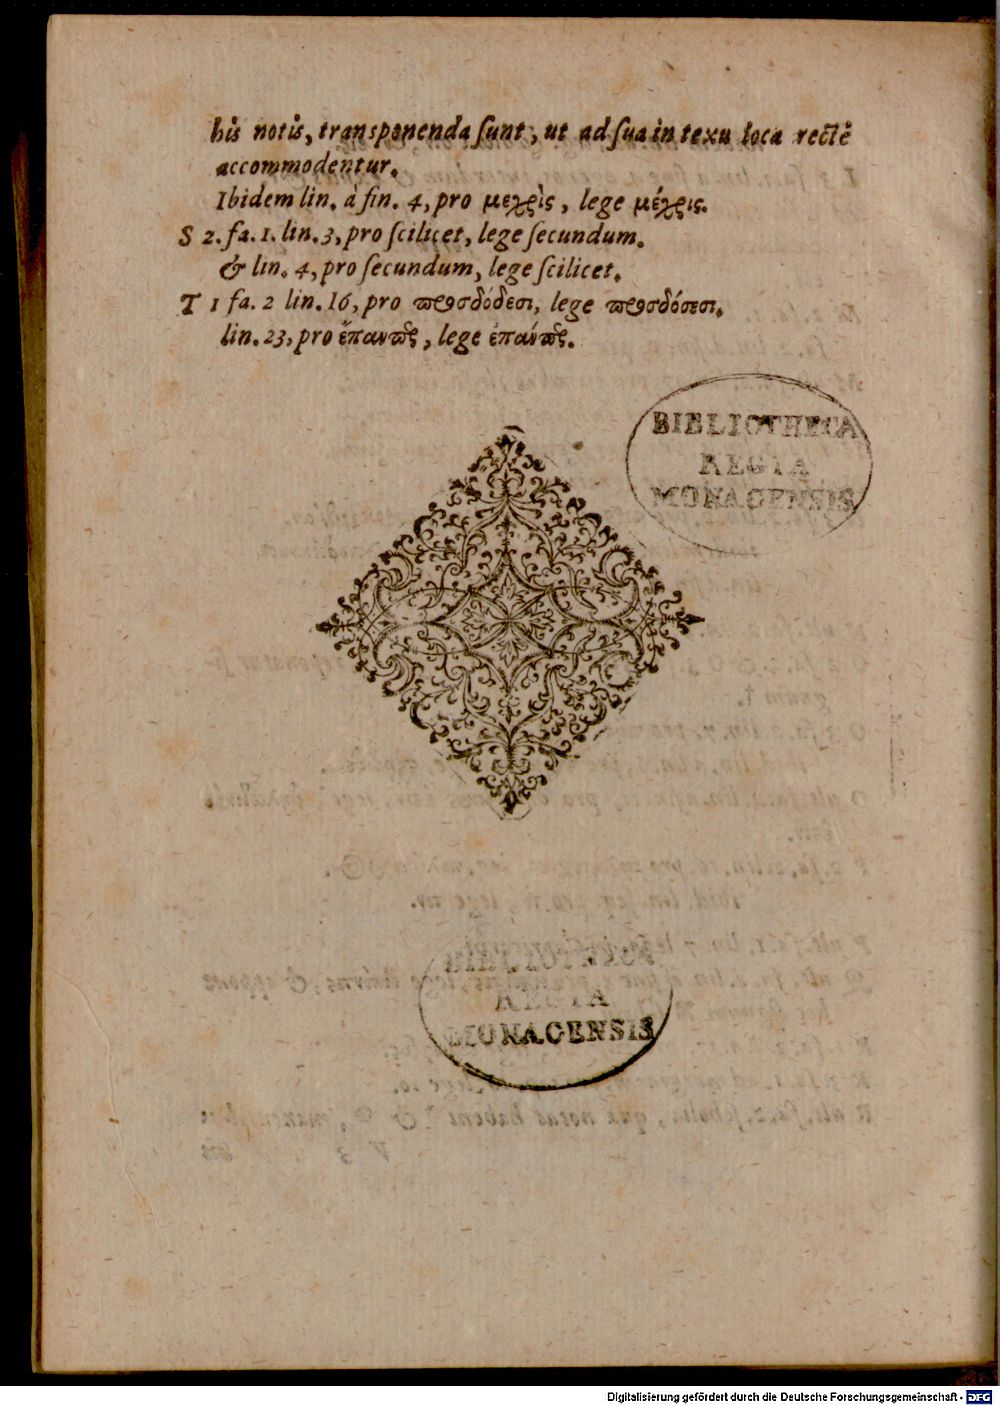 his notis, transponenda sunt, ut ad sua in texu loca rectè
accommodentur.
Ibidem lin. à fin. 4, pro μεχρὶς, lege μέχρις.
S 2. fa. 1. lin. 3, pro scilicet, lege secundum.
& lin. 4, pro secundum, lege scilicet.
T 1 fa. 2 lin. 16, pro προσδόδεσι, lege προσδόσεσι.
lin. 23, pro ἔπαντος, lege ἐπάντος.
BIBLIOTHECA
REGIA
MONACENSIS
BIBLIOTHECA
REGIA
MONACENSIS
Digitalisierung gefördert durch die Deutsche Forschungsgemeinschaft - DFG